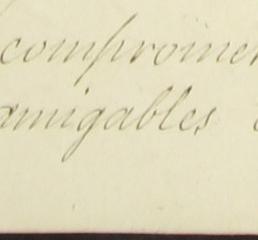 compromet
amigables